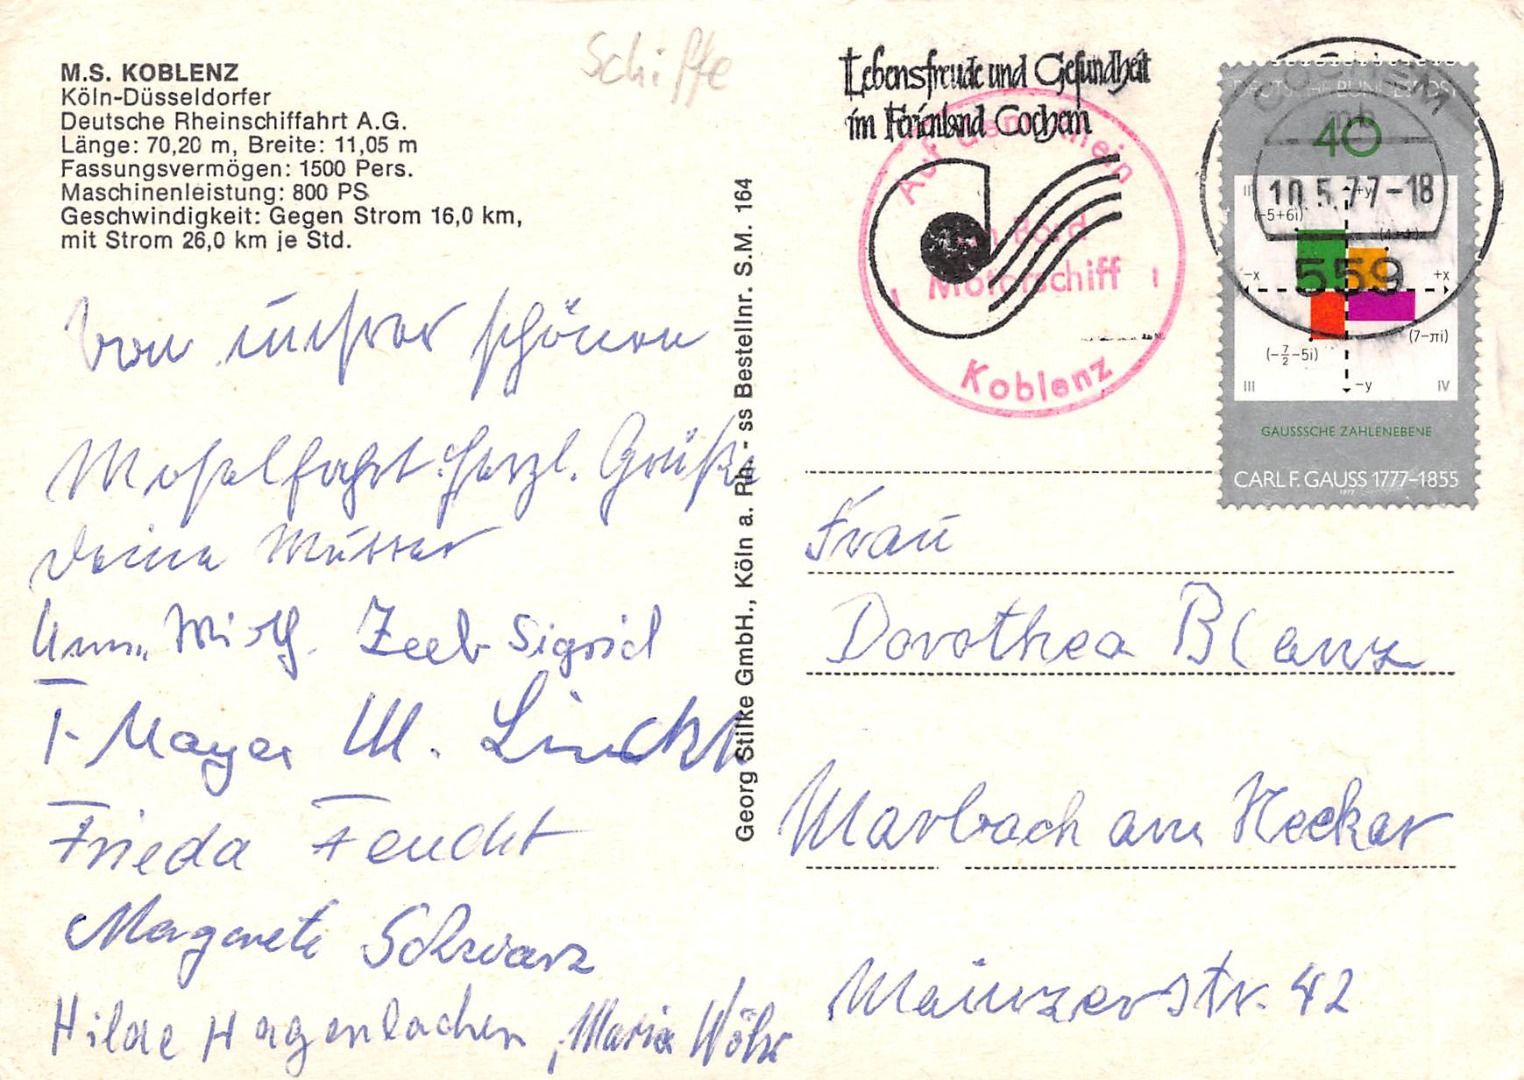 Schiffe
M.S. KOBLENZ
Köln-Düsseldorfer
Deutsche Rheinschiffahrt A.G.
Länge: 70,20 m, Breite: 11,05 m
Fassungsvermögen: 1500 Pers.
Maschinenleistung: 800 PS
Geschwindigkeit: Gegen Strom 16,0 km,
mit Strom 26,0 km je Std.
Von unserer schönen
Moselfahrt herzl. Grüße
Deine Mutter
Zeeb Sigrid
T. Mayer M. Linckh
Frieda Feucht
Margarete Schwarz
Hilde Hagenlocher, Maria Wöhr
Georg Stilke GmbH., Köln a. Rh. - ss Bestellnr. S.M. 164
Lebensfreude und Gesundheit
im Ferienland Cochem
Auf dem Rhein
an Bord
Motorschiff
Koblenz
COCHEM
mb
10.5.77-18
559
DEUTSCHE BUNDESPOST
40
II
+y
(-5+6i)
(4+4i)
-x
+x
(7-πi)
(-7/2-5i)
III
-y
IV
GAUSSSCHE ZAHLENEBENE
CARL F. GAUSS 1777-1855
1977
Frau
Dorothea Blanz
Marbach am Neckar
Mainzerstr. 42